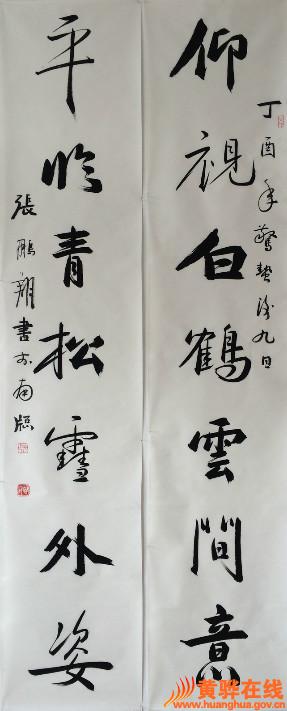 丁酉年驚蟄後九日
仰視白鶴雲間意
平青松外姿
張鵬翔書於南牖
黄骅在线
www.huanghua.gov.cn